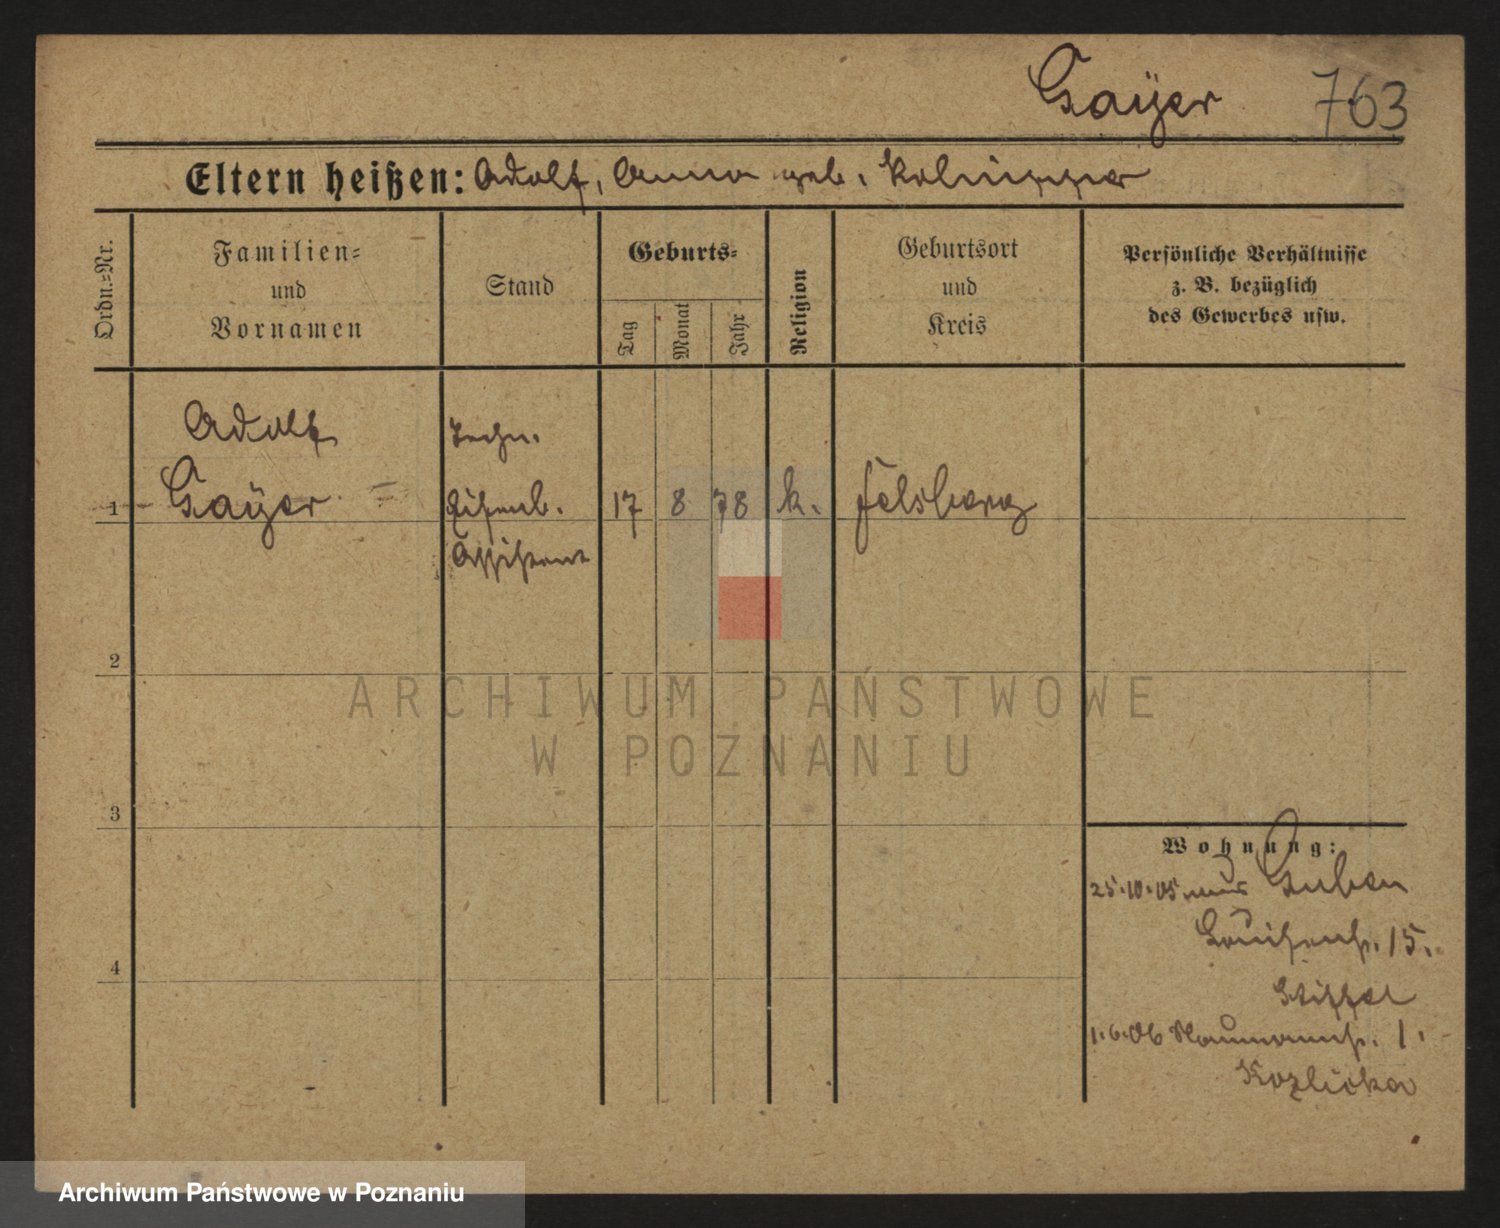 Gaÿer 763
Eltern heißen: Adolf, Anna geb.
Ordn.-Nr.
Familien-
und
Vornamen
Stand
Geburts-
Tag
Monat
Jahr
Religion
Geburtsort
und
Kreis
Persönliche Verhältnisse
z. B. bezüglich
des Gewerbes usw.
Adolf Techn.
1 Gaÿer Eisenb. 17 8 78 k. Felsberg
Assistent
2
ARCHIWUM PAŃSTWOWE
W POZNANIU
3
Wohnung:
25.10.05 aus Guben
Louisenst. 15.
4
Stiller
1.6.06 Naumannst. 1.
Kozlicka
Archiwum Państwowe w Poznaniu